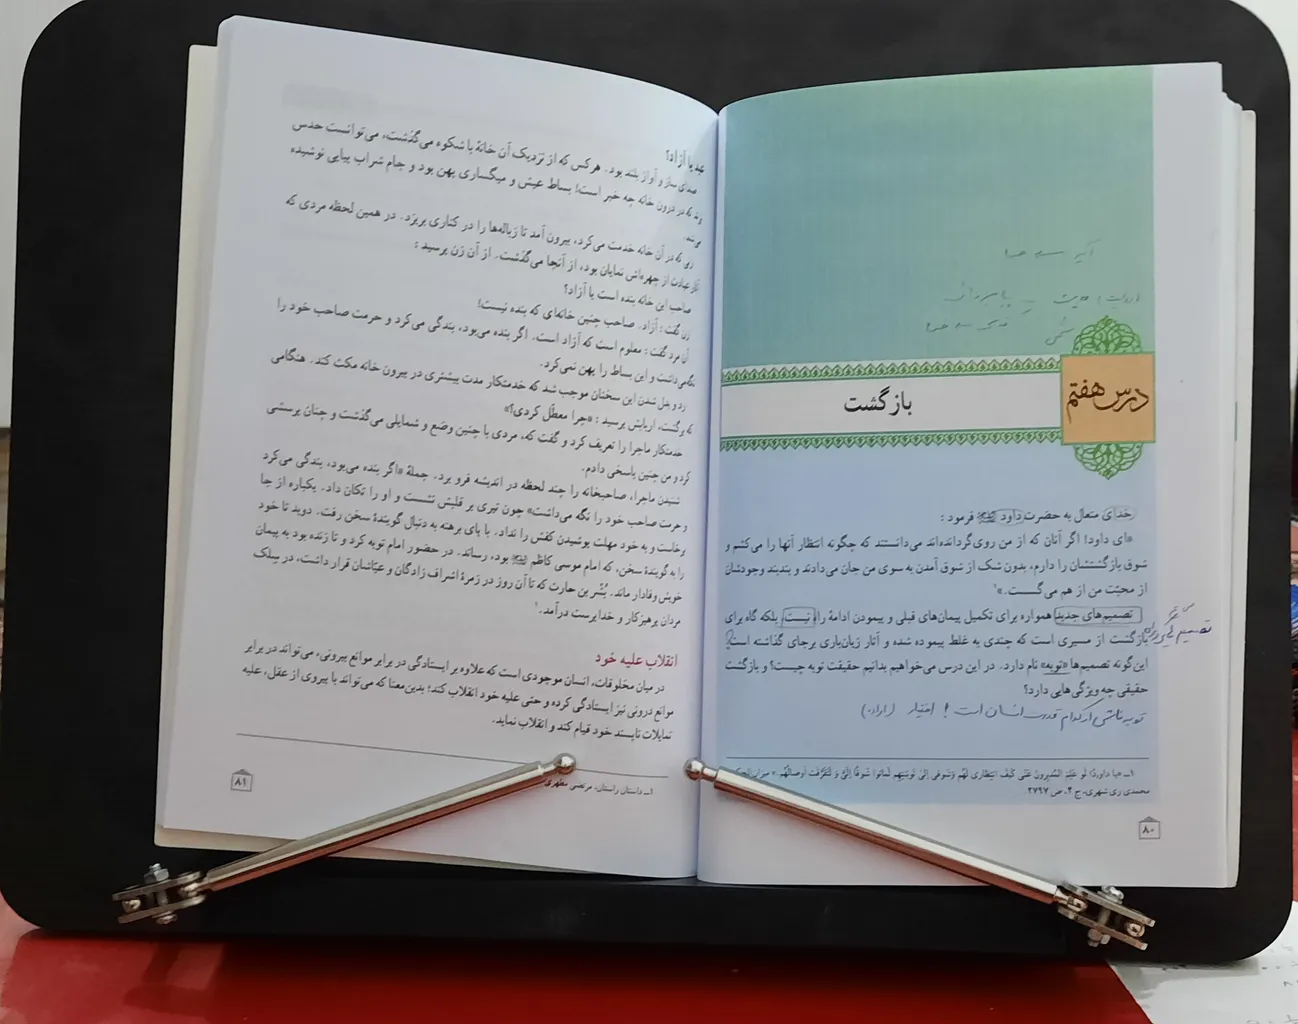 درس هفتم
بازگشت
خدای متعال به حضرت داود فرمود :
«ای داود! اگر آنان که از من روی‌گردانده‌اند می‌دانستند که چگونه انتظار آنها را می‌کشم و
شوق بازگشتشان را دارم، بدون شک از شوق آمدن به سوی من جان می‌دادند و بندبند وجودشان
از محبّت من از هم می‌گسست.»۱
تصمیم‌های جدید همواره برای تکمیل پیمان‌های قبلی و پیمودن ادامهٔ راه نیست، بلکه گاه برای
بازگشت از مسیری است که چندی به غلط پیموده شده و آثار زیان‌باری برجای گذاشته است؛
این‌گونه تصمیم‌ها «توبه» نام دارد. در این درس می‌خواهیم بدانیم حقیقت توبه چیست؟ و بازگشت
حقیقی چه ویژگی‌هایی دارد؟
توبه ناشی از کدام قدرت انسان است؟ اختیار (اراده)
محمدی ری شهری، ج ۴، ص ۲۷۹۷.
۸۰
عبد یا آزاد؟
صدای ساز و آواز بلند بود. هرکس که از نزدیک آن خانهٔ باشکوه می‌گذشت، می‌توانست حدس
بزند که در درون خانه چه خبر است! بساط عیش و میگساری پهن بود و جام شراب پیاپی نوشیده
می‌شد.
زنی که در آن خانه خدمت می‌کرد، بیرون آمد تا زباله‌ها را در کناری بریزد. در همین لحظه مردی که
آثار عبادت از چهره‌اش نمایان بود، از آنجا می‌گذشت. از آن زن پرسید :
صاحب این خانه بنده است یا آزاد؟
زن گفت : آزاد. صاحب چنین خانه‌ای که بنده نیست!
آن مرد گفت : معلوم است که آزاد است. اگر بنده می‌بود، بندگی می‌کرد و حرمت صاحب خود را
نگاه می‌داشت و این بساط را پهن نمی‌کرد.
رد و بدل شدن این سخنان موجب شد که خدمتکار مدت بیشتری در بیرون خانه مکث کند. هنگامی
که برگشت، اربابش پرسید : «چرا معطّل کردی؟»
خدمتکار ماجرا را تعریف کرد و گفت که، مردی با چنین وضع و شمایلی می‌گذشت و چنان پرسشی
کرد و من چنین پاسخی دادم.
شنیدن ماجرا، صاحبخانه را چند لحظه در اندیشه فرو برد. جملهٔ «اگر بنده می‌بود، بندگی می‌کرد
و حرمت صاحب خود را نگه می‌داشت» چون تیری بر قلبش نشست و او را تکان داد. یکباره از جا
برخاست و به خود مهلت پوشیدن کفش را نداد. با پای برهنه به دنبال گویندهٔ سخن رفت. دوید تا خود
را به گویندهٔ سخن، که امام موسی کاظم بود، رساند. در حضور امام توبه کرد و تا زنده بود به پیمان
خویش وفادار ماند. بُشْر بن حارث که تا آن روز در زمرهٔ اشراف زادگان و عیّاشان قرار داشت، در سِلک
مردان پرهیزکار و خداپرست درآمد.۱
انقلاب علیه خود
در میان مخلوقات، انسان موجودی است که علاوه بر ایستادگی در برابر موانع بیرونی، می‌تواند در برابر
موانع درونی نیز ایستادگی کرده و حتی علیه خود انقلاب کند؛ بدین‌معنا که می‌تواند با پیروی از عقل، علیه
تمایلات ناپسند خود قیام کند و انقلاب نماید.
۱ــ داستان راستان، مرتضی مطهری
۸۱